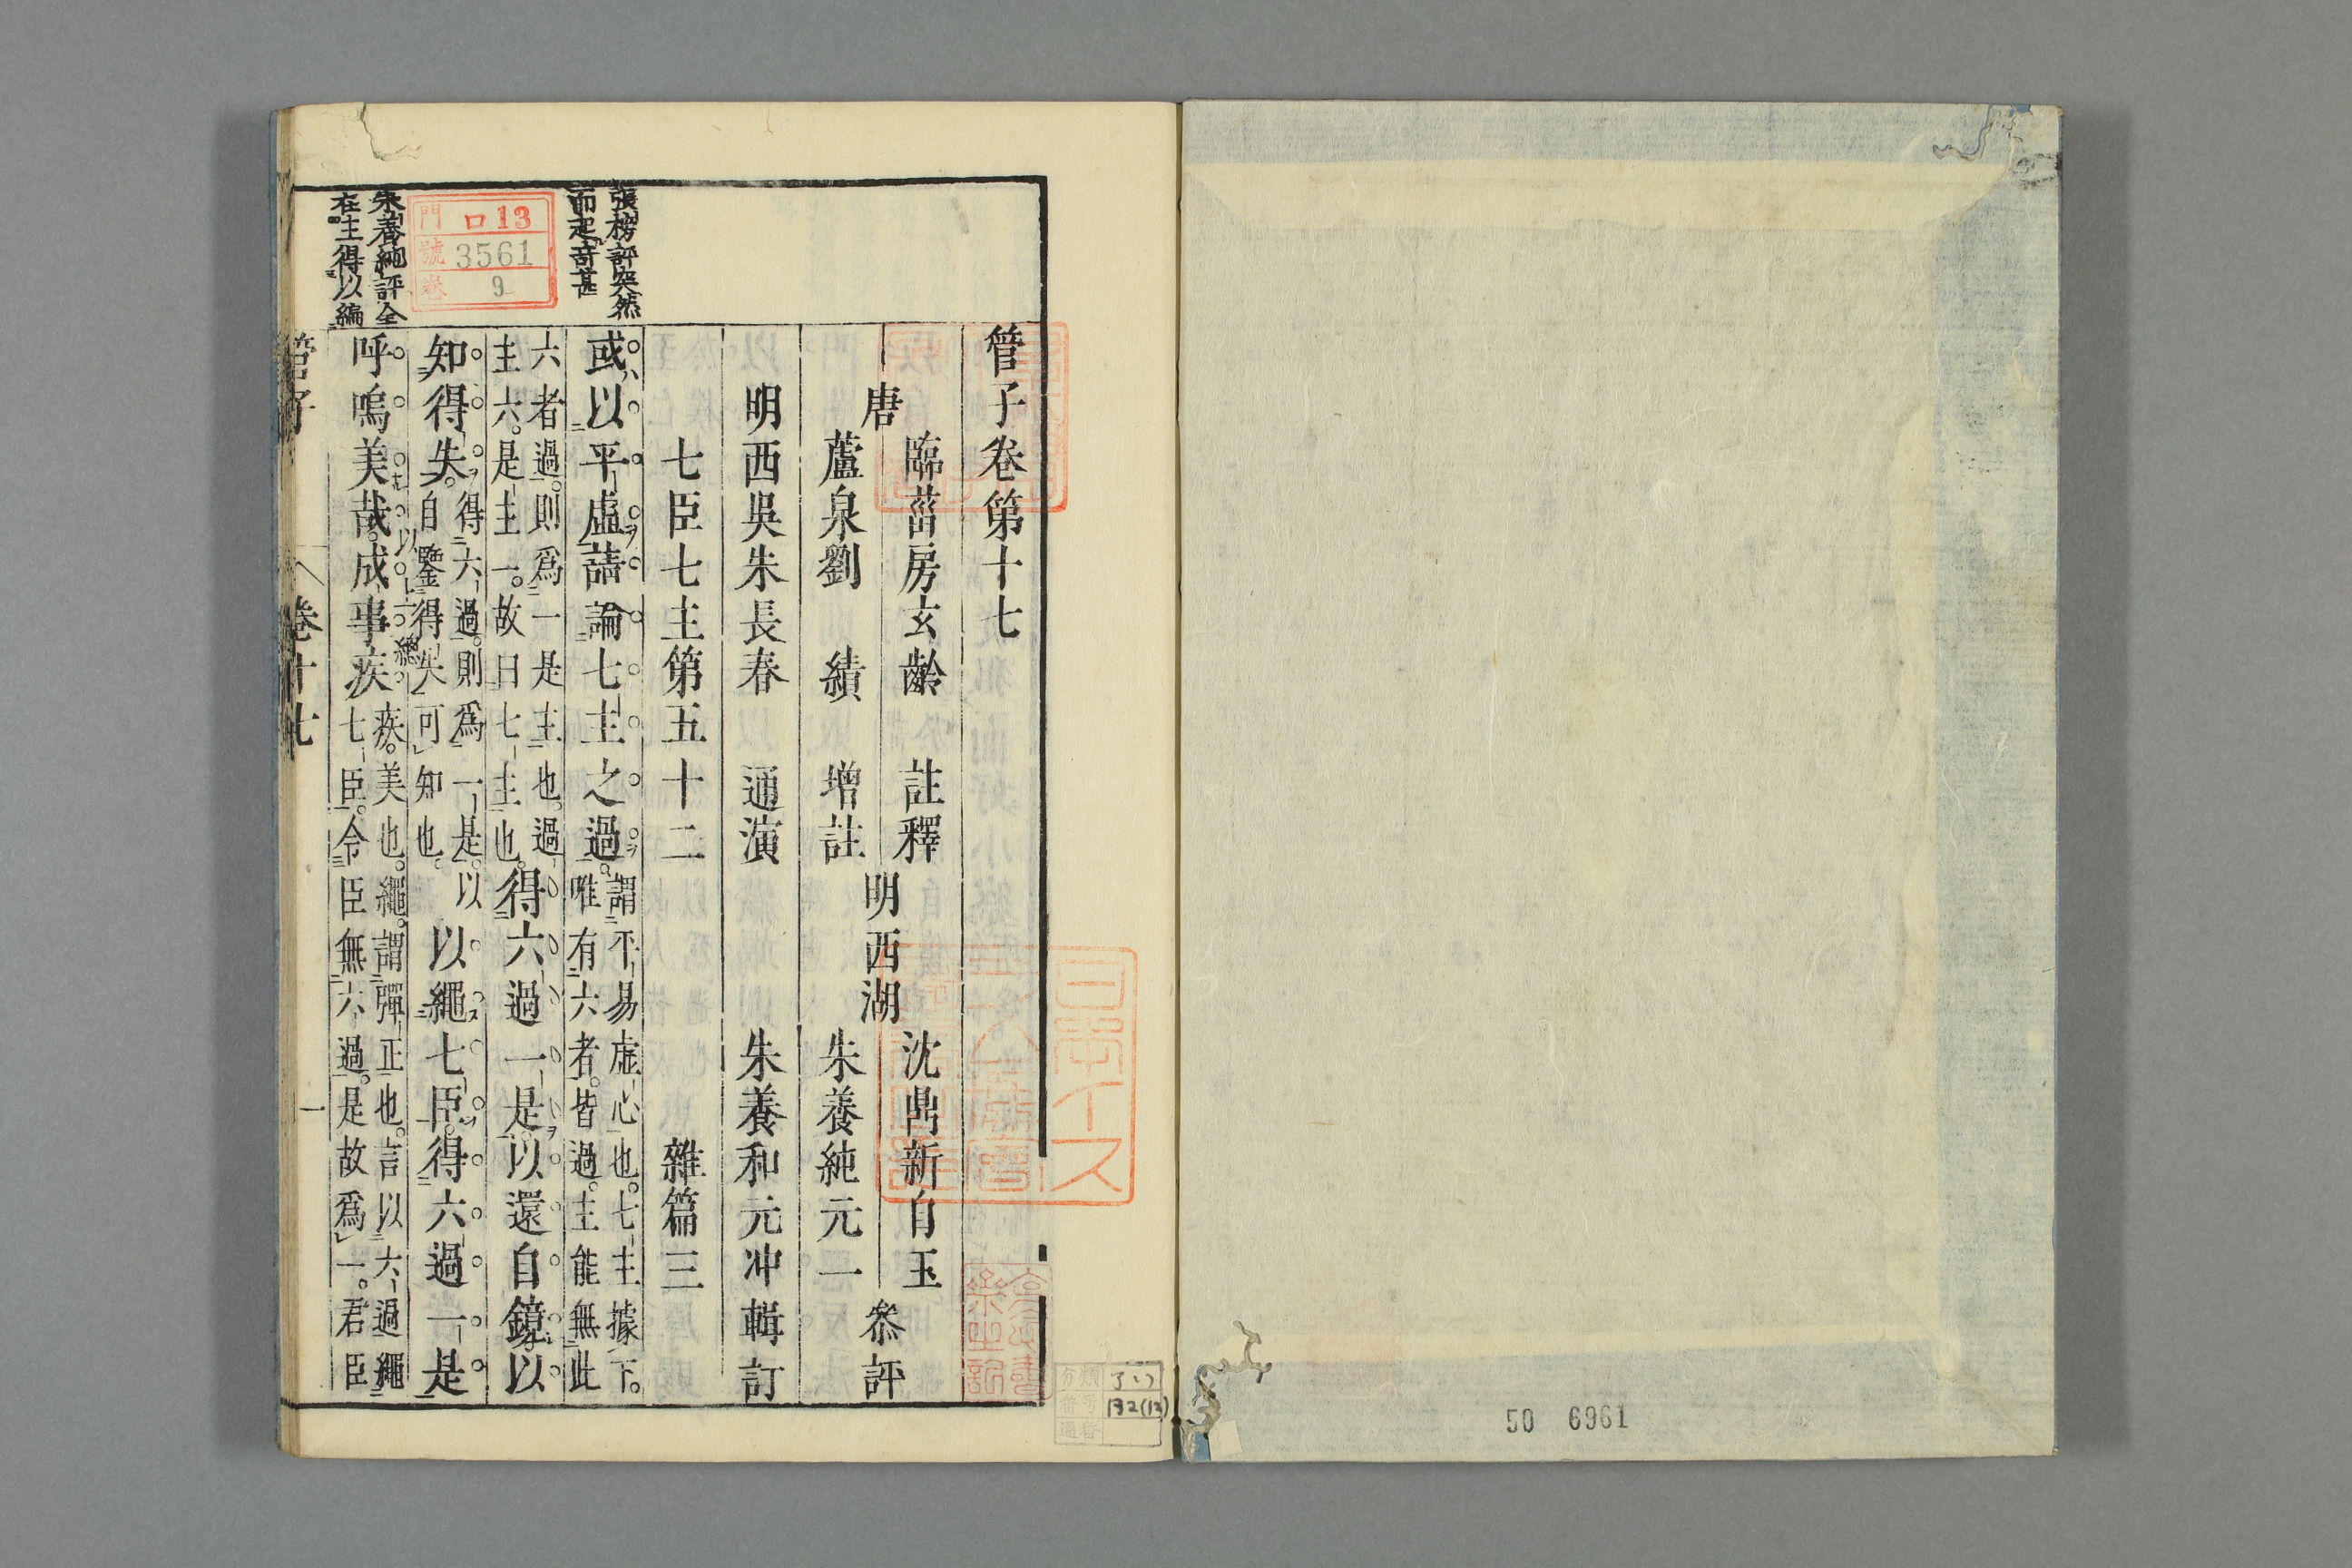 管子卷第十七
唐
臨菑房玄齡 註釋
蘆泉劉 績 增註
明西湖
沈鼎新自玉
朱養純元一
叅評
明西吳朱長春 通演
朱養和元冲輯訂
七臣七主第五十二 雜篇三
張榜評突然
而起奇甚
或以平虛請論七主之過。謂平易虛心也。七主據下。
唯有六者。皆過。主能無此
六者過。則爲一是主也。過
主六。是主一。故曰七主也。得六過一是。以還自鏡。以
知得失。得六過。則爲一是。以
自鑒得失可知也。以繩七臣。得六過一是
朱養純評全
在主得以編
呼嗚美哉。成事疾。疾。美也。繩。謂彈正也。言以六過繩
七臣。令臣無六過。是故爲一。君臣
管子
卷十七
一
門 口13
號 3561
卷 9
132(13)
50 6961